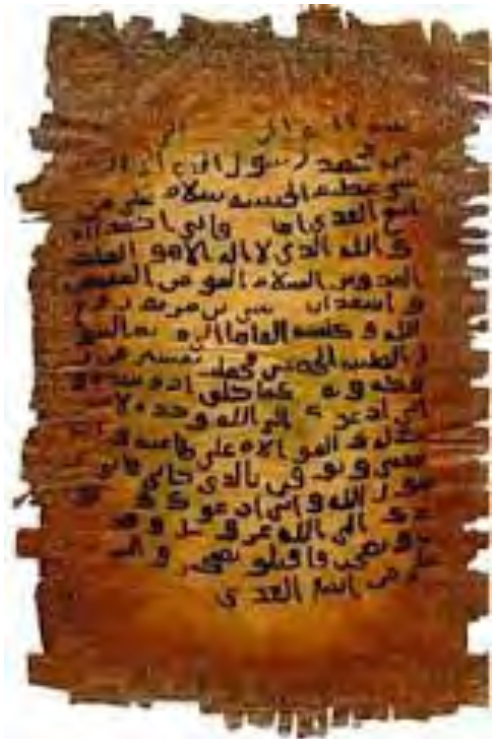 بسم
من محمد رسول الله الى
شى عظيم الحبسه سلام على من
اتبع الهدى اما وانى احمد الله
الله الذى لا اله الا هو الملك
القدوس السلام المومن المهيمن
و اسهد ان عيسى بن مريم روح
الله و كلمته القاها الى مريم
الطيبه الحصينه فحملت بعيسى من ر
وحه و كما خلق ادم بيده و
انى ادعوك الى الله وحده لا
شريك له والموالاه على طاعته و
و بالذى جانى فانى
رسول الله وانى ادعوك
الى الله عز و جل وقد
و نصحت فاقبلو نصحى والسلا
م على من اتبع الهدى